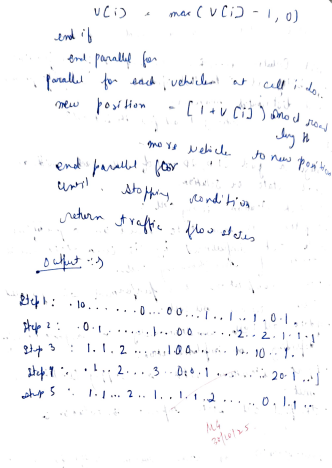 V[i] = max(V[i] - 1, 0)
end if
end parallel for
parallel for each vehicle at cell i do
new position = [1+V[i]) mod road
length
move vehicle to new position
end parallel for
until stopping condition
return traffic flow states
output :-
Step 1 : .10.......0..00...1..1..1.0.1.
Step 2 : .0.1.......1..00.....2..2.1.1.
Step 3 : 1.1.2....100.......1..10..1.
Step 4 : ..1..2...3..0.0.1.......20.1...
Step 5 : 1.1...2..1..1.1.2......0.1.1..